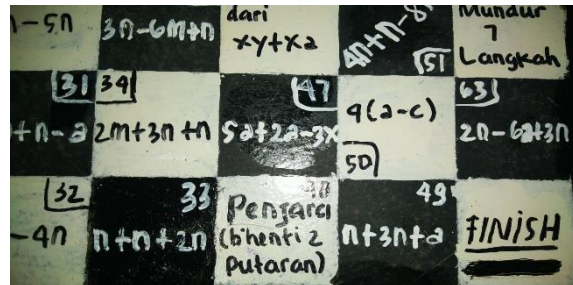 -5n
3n-6m+n
dari
xy+xz
4n+n-8
51
Mundur
7
Langkah
31
+n-a
34
2m+3n+n
47
5a+2a-3x
9(a-c)
50
63
2n-6a+3n
32
-4n
33
n+n+2n
48
Penjara
(b'henti 2
putaran)
49
n+3n+a
FINISH